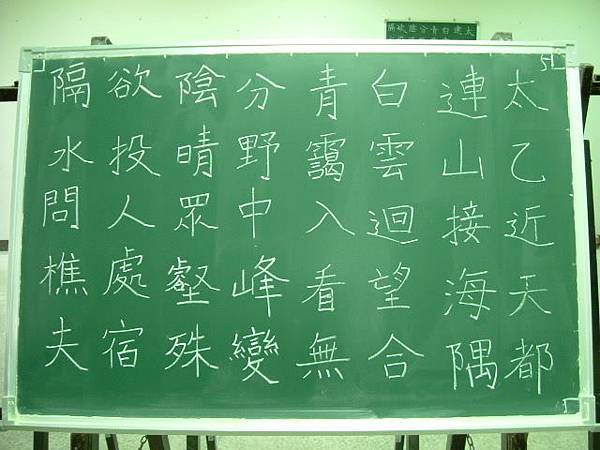 太乙近天都
連山接海隅
白雲迴望合
青靄入看無
分野中峰變
陰晴眾壑殊
欲投人處宿
隔水問樵夫